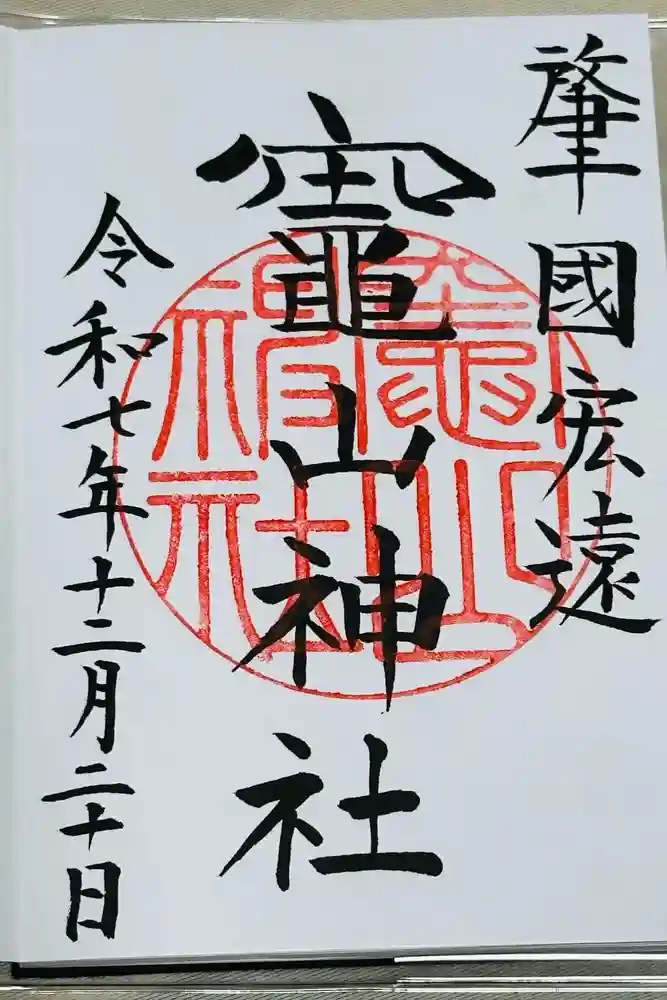 肇國宏遠
竈山神社
竈山神社
令和七年十二月二十日